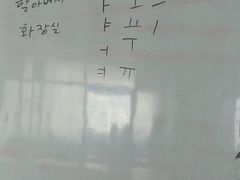 할아버지 ㅏ ㅗ ㅡ
화장실 ㅑ ㅛ ㅣ
ㅓ ㅜ
ㅕ ㅠ